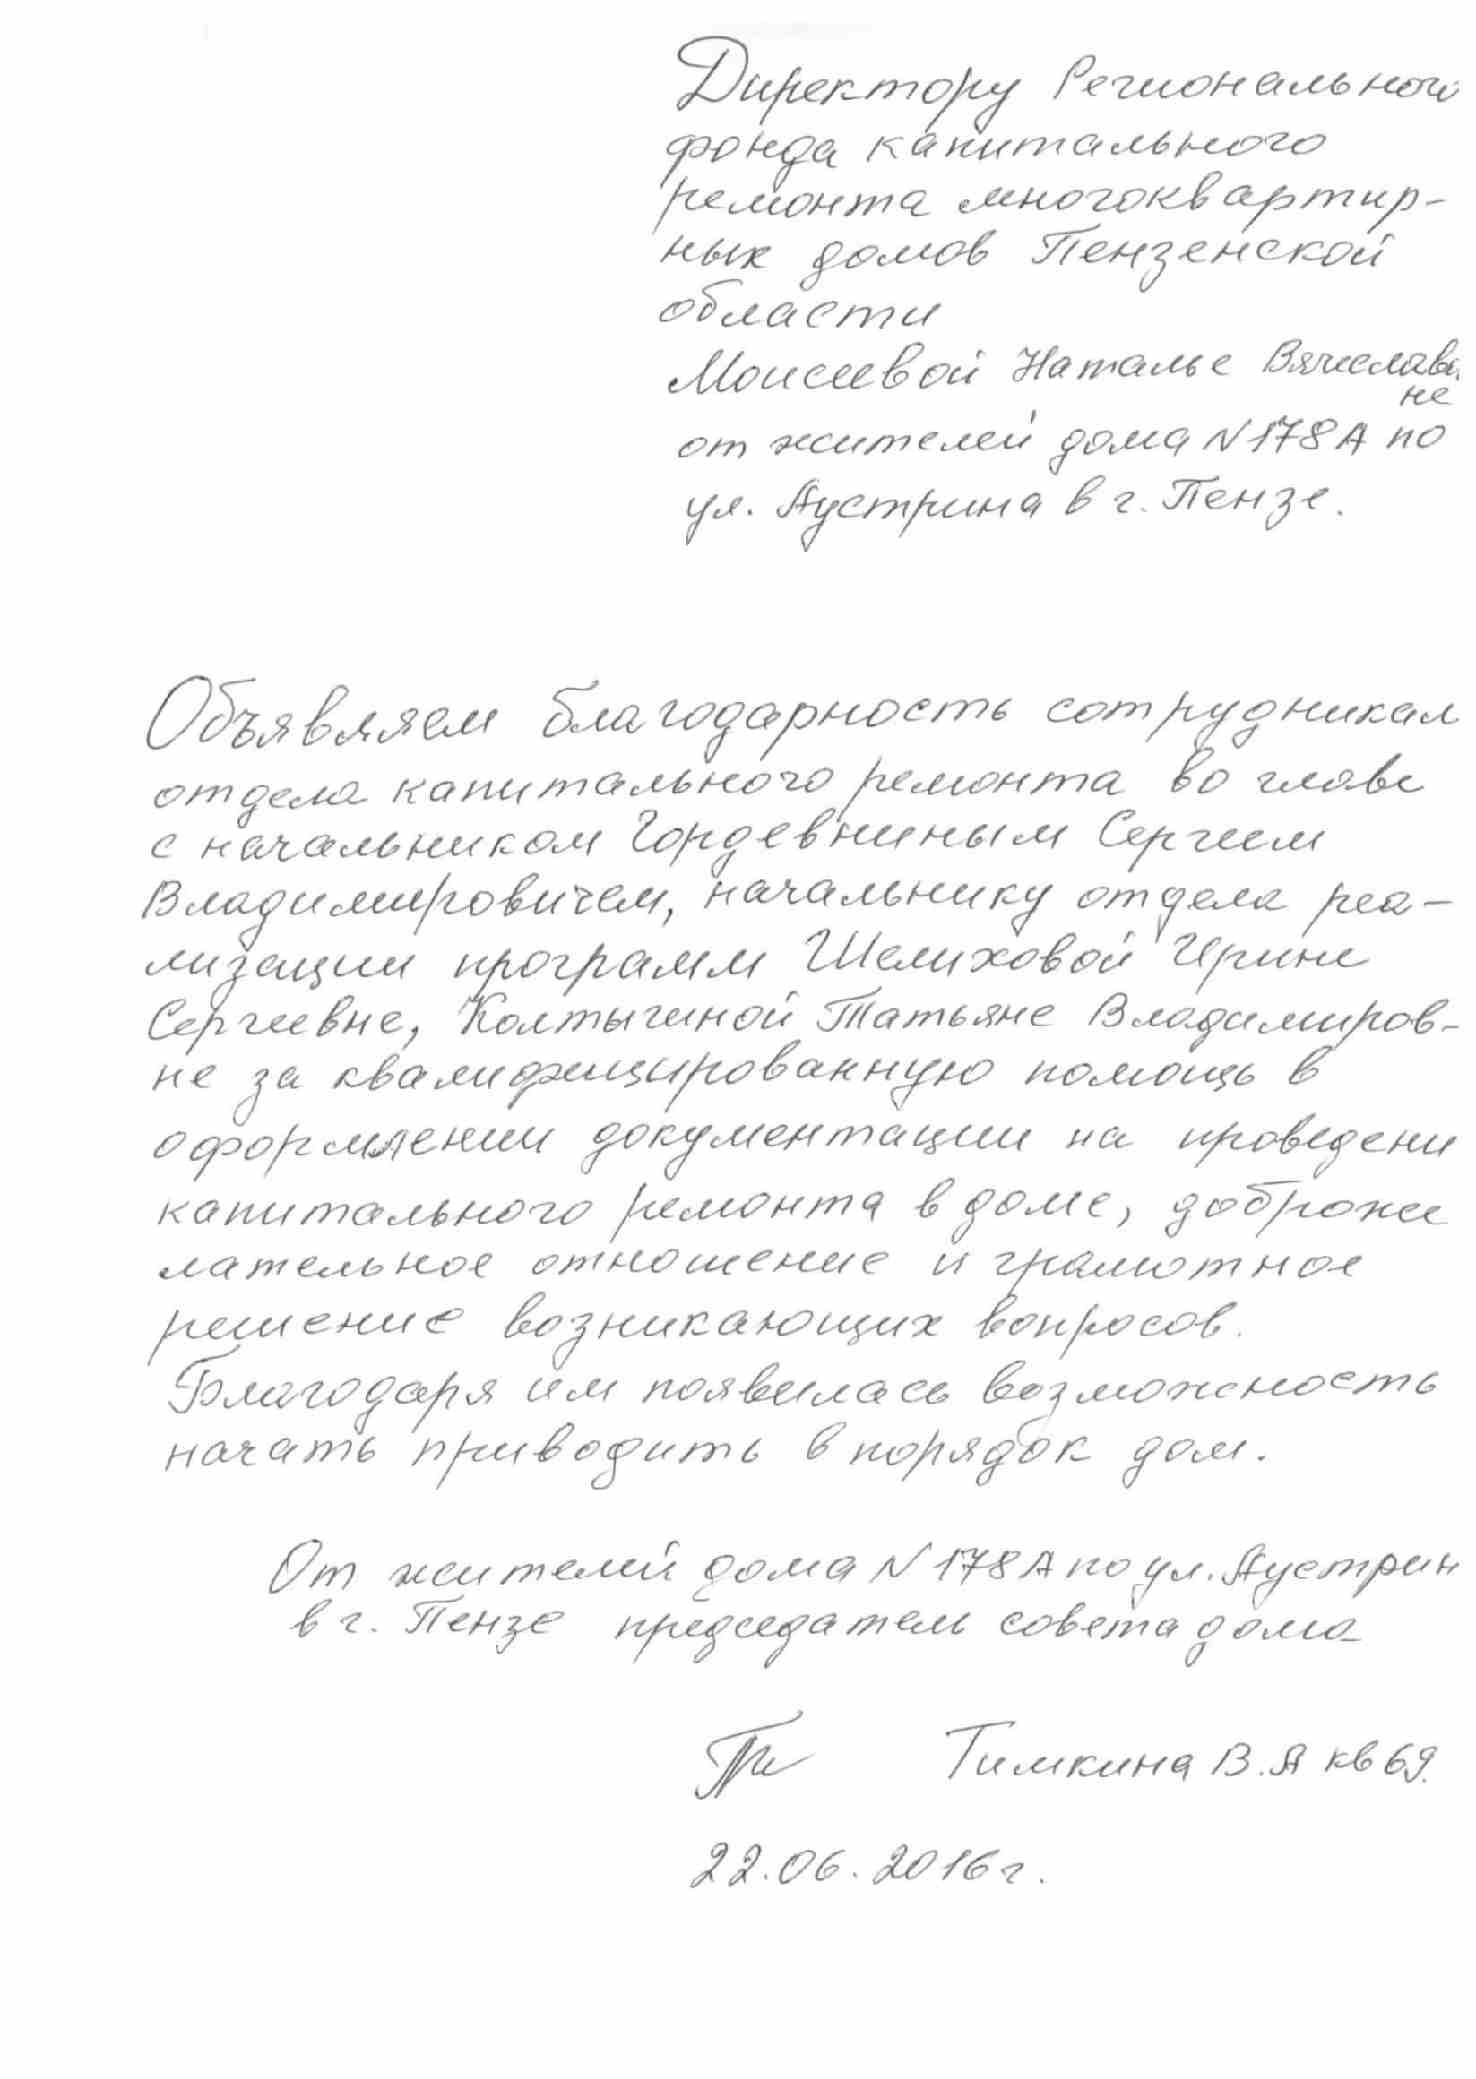 Директору Регионального
фонда капитального
ремонта многоквартир-
ных домов Пензенской
области
Моисеевой Наталье Вячеславов
не
от жителей дома N 178 А по
ул. Аустрина в г. Пензе.
Объявляем благодарность сотрудникам
отдела капитального ремонта во главе
с начальником Гордевниным Сергеем
Владимировичем, начальнику отдела реа-
лизации программ Шелиховой Ирине
Сергеевне, Колтыгиной Татьяне Владимиров-
не за квалифицированную помощь в
оформлении документации на проведени
капитального ремонта в доме, доброже
лательное отношение и грамотное
решение возникающих вопросов.
Благодаря им появилась возможность
начать приводить в порядок дом.
От жителей дома N 178 А по ул. Аустрин
в г. Пензе председатель совета дома
Тимкина В.А кв 69.
22.06.2016 г.